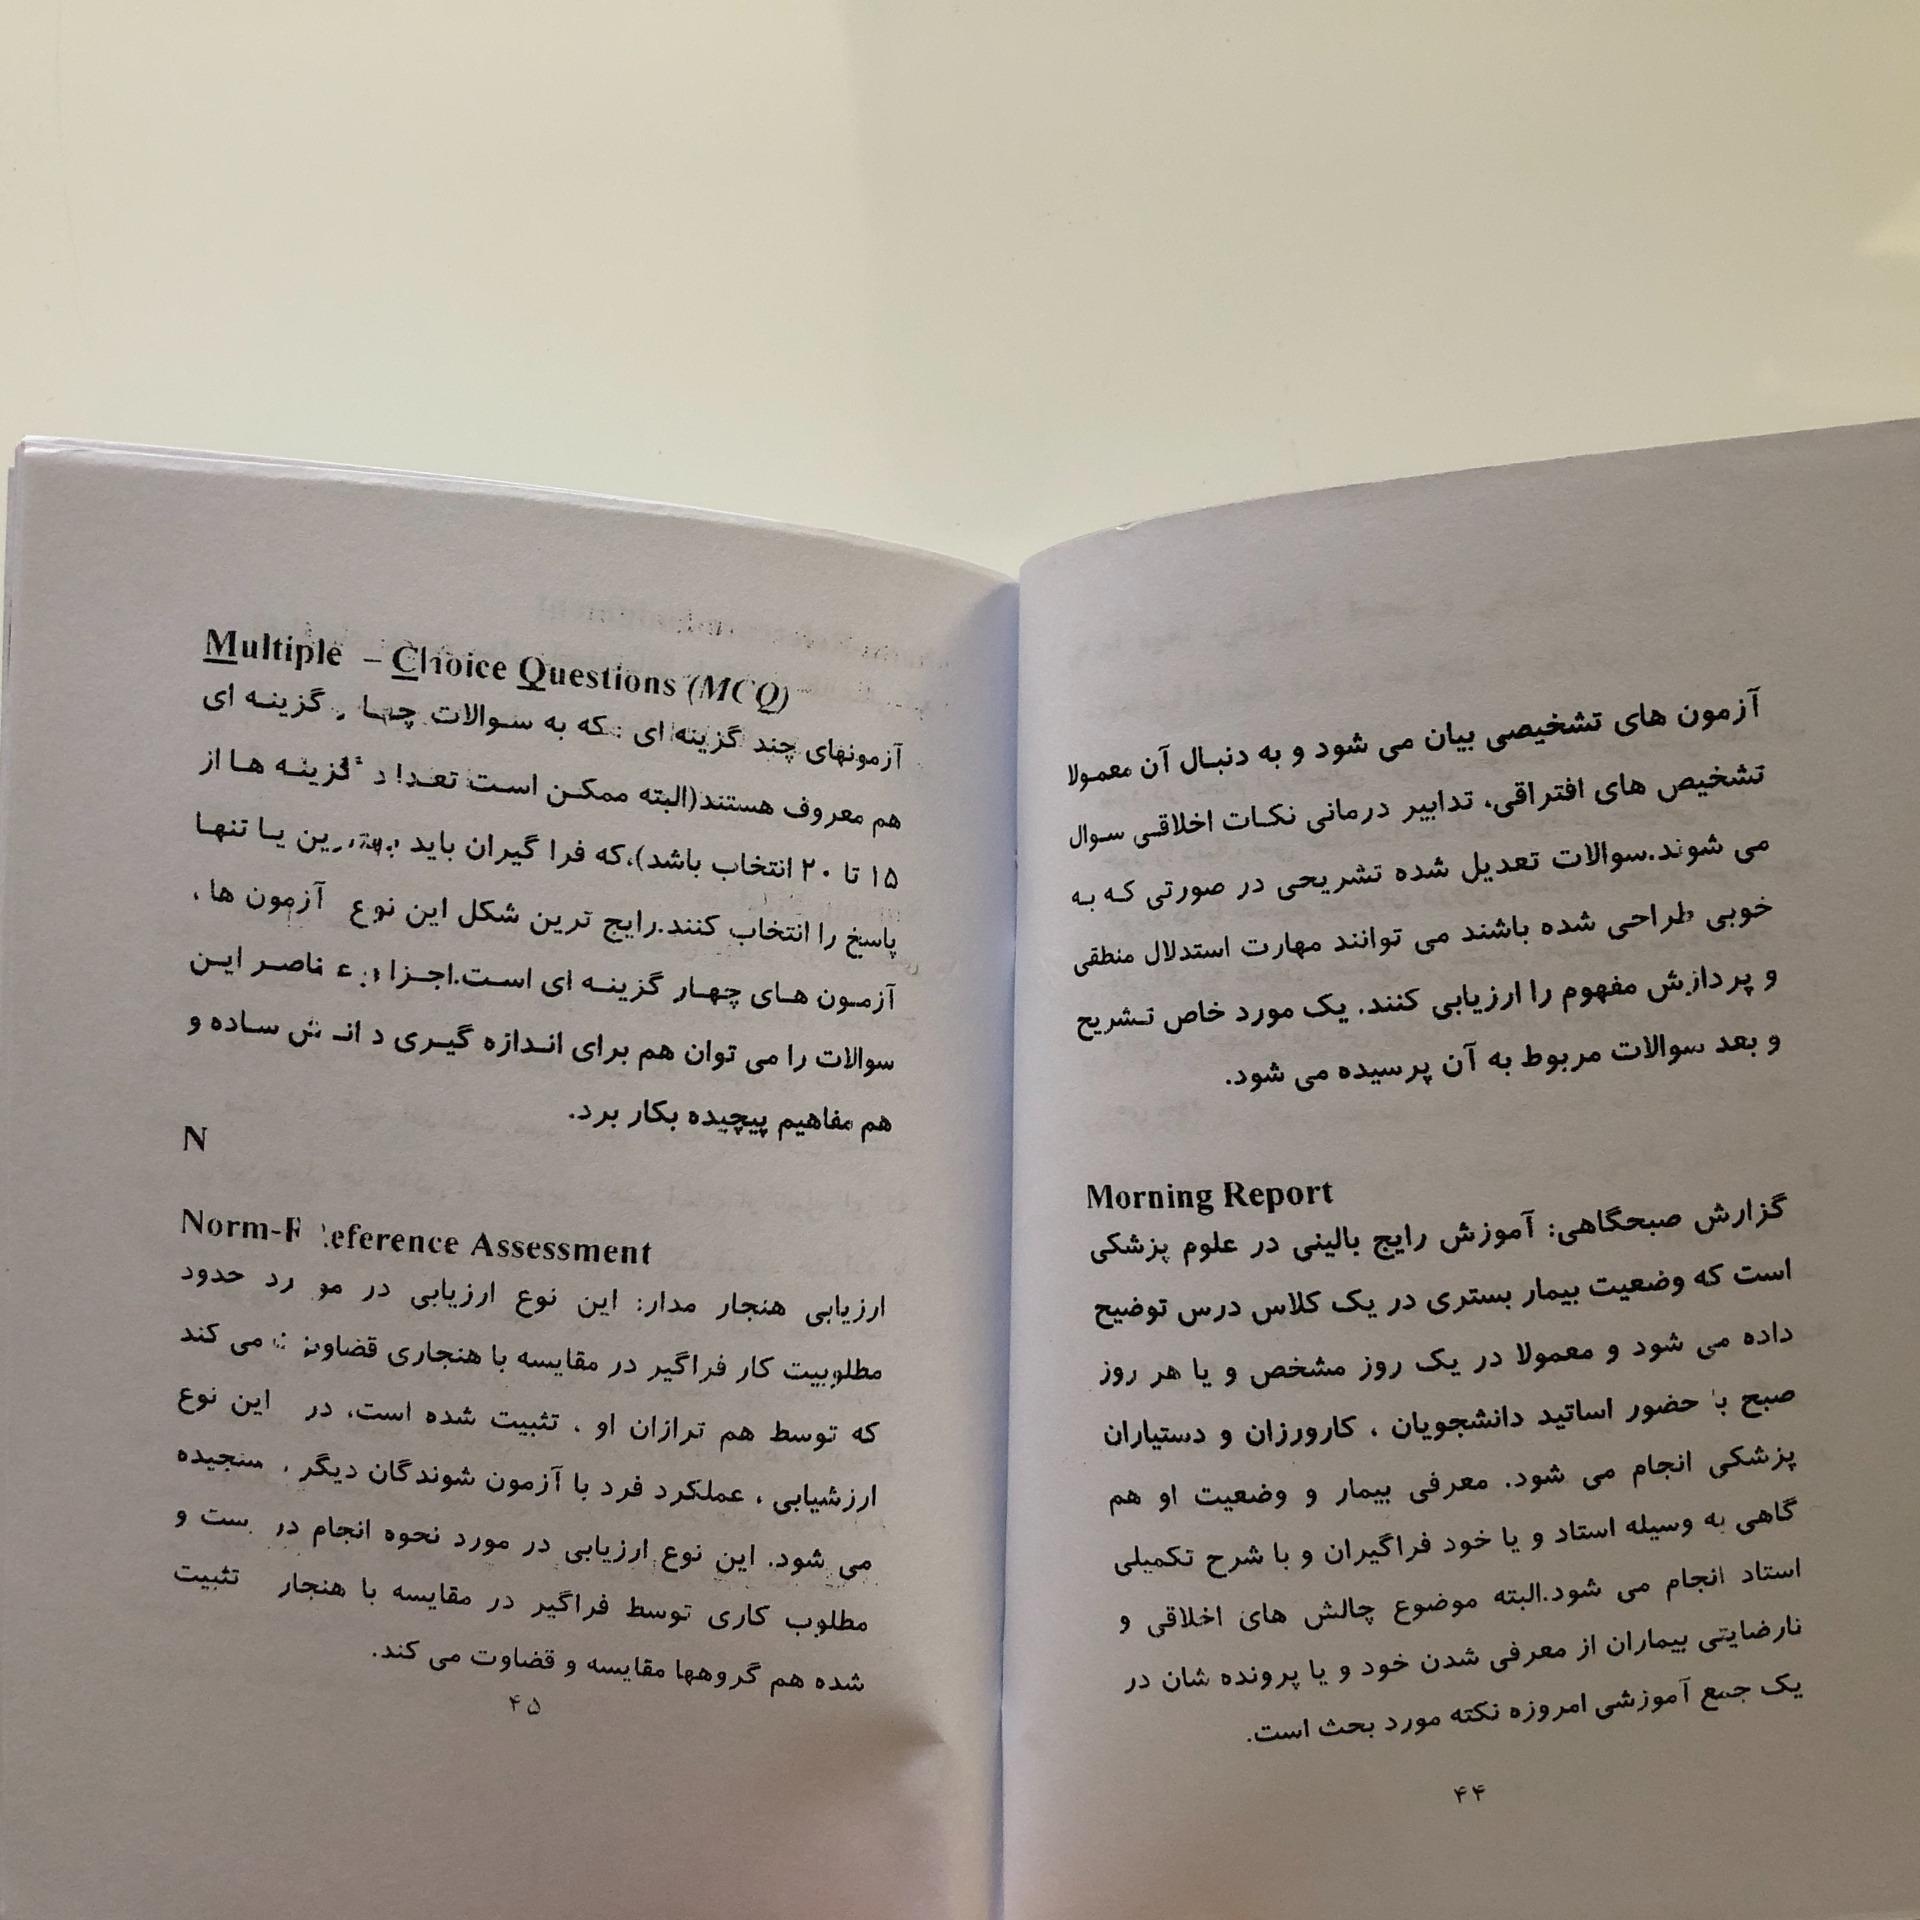 آزمون های تشخیصی بیان می شود و به دنبال آن معمولا
تشخیص های افتراقی، تدابیر درمانی نکات اخلاقی سوال
می شوند.سوالات تعدیل شده تشریحی در صورتی که به
خوبی طراحی شده باشند می توانند مهارت استدلال منطقی
و پردازش مفهوم را ارزیابی کنند. یک مورد خاص تشریح
و بعد سوالات مربوط به آن پرسیده می شود.
Morning Report
گزارش صبحگاهی: آموزش رایج بالینی در علوم پزشکی
است که وضعیت بیمار بستری در یک کلاس درس توضیح
داده می شود و معمولا در یک روز مشخص و یا هر روز
صبح با حضور اساتید دانشجویان ، کارورزان و دستیاران
پزشکی انجام می شود. معرفی بیمار و وضعیت او هم
گاهی به وسیله استاد و یا خود فراگیران و با شرح تکمیلی
استاد انجام می شود.البته موضوع چالش های اخلاقی و
نارضایتی بیماران از معرفی شدن خود و یا پرونده شان در
یک جمع آموزشی امروزه نکته مورد بحث است.
۴۴
Multiple – Choice Questions (MCQ)
آزمونهای چند گزینه ای : که به سوالات چهار گزینه ای
هم معروف هستند(البته ممکن است تعداد گزینه ها از
۱۵ تا ۲۰ انتخاب باشد)،که فرا گیران باید بهترین یا تنها
پاسخ را انتخاب کنند.رایج ترین شکل این نوع آزمون ها ،
آزمون های چهار گزینه ای است.اجزا و عناصر این
سوالات را می توان هم برای اندازه گیری دانش ساده و
هم مفاهیم پیچیده بکار برد.
N
Norm-Reference Assessment
ارزیابی هنجار مدار: این نوع ارزیابی در مورد حدود
مطلوبیت کار فراگیر در مقایسه با هنجاری قضاوت می کند
که توسط هم ترازان او ، تثبیت شده است، در این نوع
ارزشیابی ، عملکرد فرد با آزمون شوندگان دیگر ، سنجیده
می شود. این نوع ارزیابی در مورد نحوه انجام درست و
مطلوب کاری توسط فراگیر در مقایسه با هنجار تثبیت
شده هم گروهها مقایسه و قضاوت می کند.
۴۵